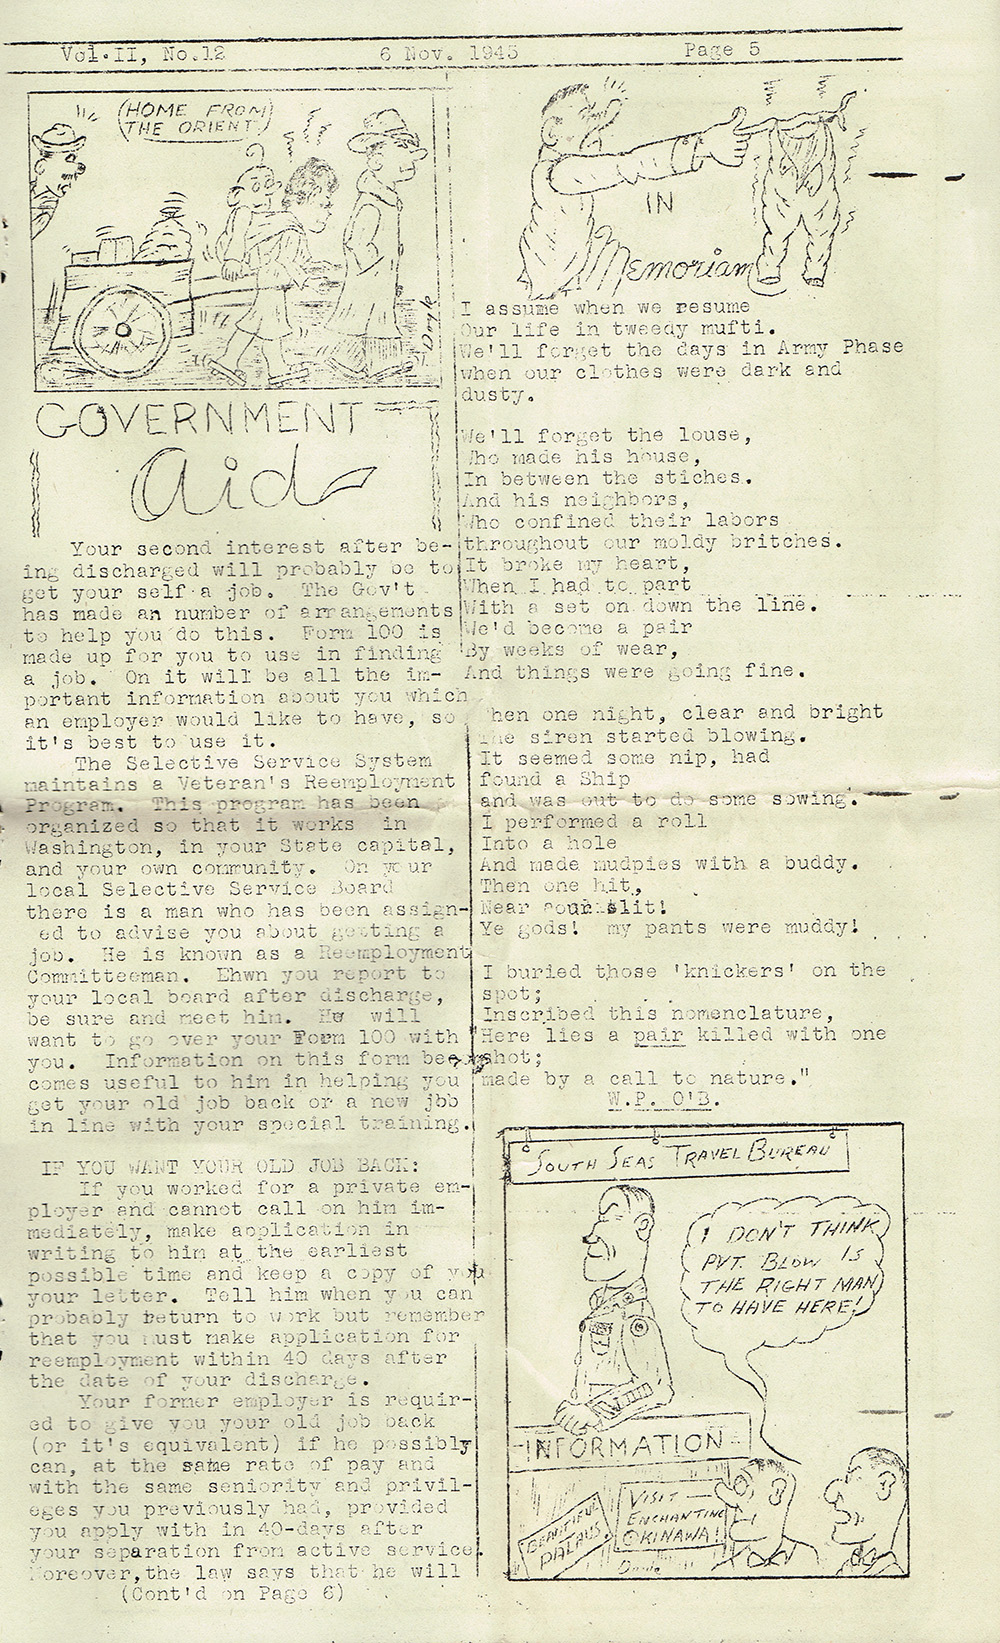 Vol.II, No.12 6 Nov. 1945 Page 5
(HOME FROM
THE ORIENT)
Doyle
GOVERNMENT
Aid
Your second interest after be-
ing discharged will probably be to
get your self a job. The Gov't
has made an number of arrangements
to help you do this. Form 100 is
made up for you to use in finding
a job. On it will be all the im-
portant information about you which
an employer would like to have, so
it's best to use it.
The Selective Service System
maintains a Veteran's Reemployment
Program. This program has been
organized so that it works in
Washington, in your State capital,
and your own community. On your
local Selective Service Board
there is a man who has been assign-
ed to advise you about getting a
job. He is known as a Reemployment
Committeeman. Ehwn you report to
your local board after discharge,
be sure and meet him. He will
want to go over your Form 100 with
you. Information on this form bee
comes useful to him in helping you
get your old job back or a new jbb
in line with your special training.
IF YOU WANT YOUR OLD JOB BACK:
If you worked for a private em-
ployer and cannot call on him im-
mediately, make application in
writing to him at the earliest
possible time and keep a copy of you
your letter. Tell him when you can
probably return to work but remember
that you must make application for
reemployment within 40 days after
the date of your discharge.
Your former employer is requir-
ed to give you your old job back
(or it's equivalent) if he possibly
can, at the same rate of pay and
with the same seniority and privil-
eges you previously had, provided
you apply with in 40-days after
your separation from active service.
Moreover,the law says that he will
(Cont'd on Page 6)
IN
Memoriam
I assume when we resume
Our life in tweedy mufti.
We'll forget the days in Army Phase
when our clothes were dark and
dusty.
We'll forget the louse,
Who made his house,
In between the stiches.
And his neighbors,
Who confined their labors
throughout our moldy britches.
It broke my heart,
When I had to part
With a set on down the line.
We'd become a pair
By weeks of wear,
And things were going fine.
Then one night, clear and bright
The siren started blowing.
It seemed some nip, had
found a Ship
and was out to do some sowing.
I performed a roll
Into a hole
And made mudpies with a buddy.
Then one hit,
Near our slit!
Ye gods! my pants were muddy!
I buried those 'knickers' on the
spot;
Inscribed this nomenclature,
"Here lies a pair killed with one
shot;
made by a call to nature."
W.P. O'B.
SOUTH SEAS TRAVEL BUREAU
I DON'T THINK
PVT. BLOW IS
THE RIGHT MAN
TO HAVE HERE!
INFORMATION
BEAUTIFUL
PALAUS
VISIT
ENCHANTING
OKINAWA!